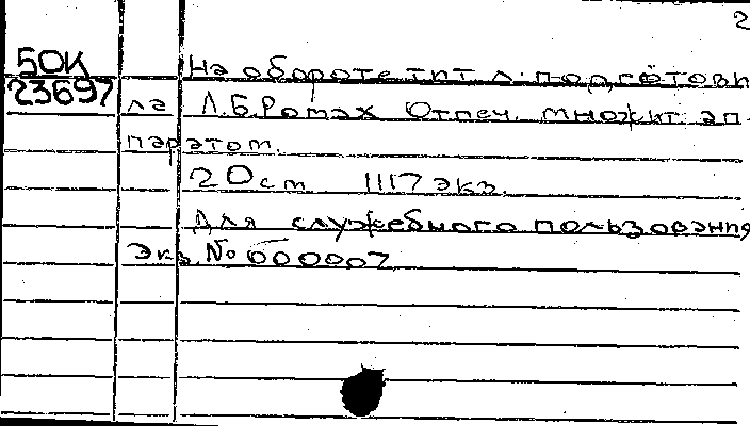 2
50К
23697
На обороте тит. л: подготови
ла Л.Б.Ромах Отпеч. множит. ап
паратом.
20 ст 1117 экз.
Для служебного пользования
Экз. № 000007